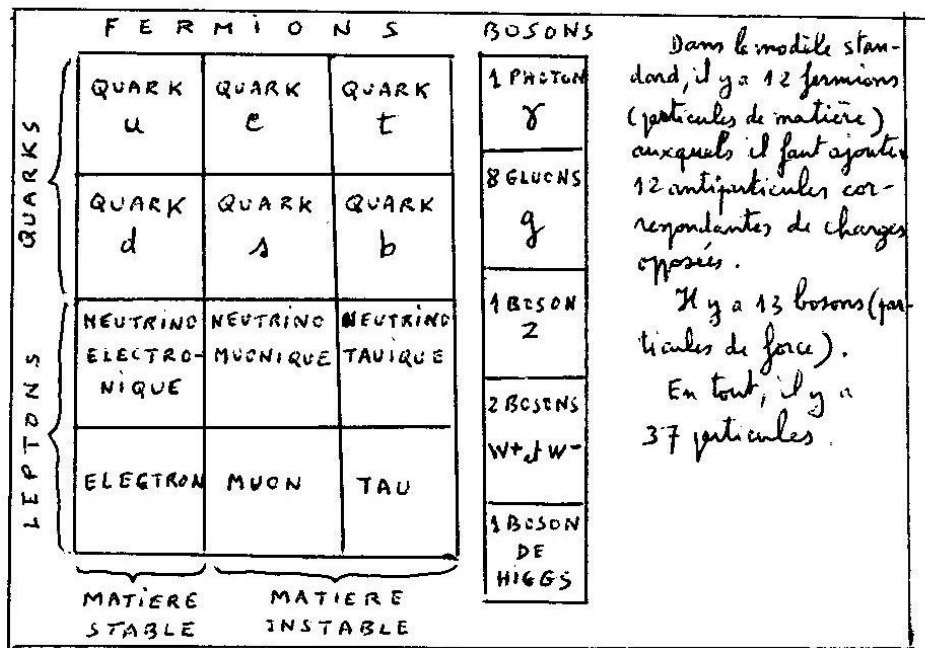 FERMIONS
BOSONS
QUARKS
QUARK u
QUARK c
QUARK t
QUARK d
QUARK s
QUARK b
LEPTONS
NEUTRINO
ELECTRO-
NIQUE
NEUTRINO
MUONIQUE
NEUTRINO
TAUIQUE
ELECTRON
MUON
TAU
MATIERE
STABLE
MATIERE
INSTABLE
1 PHOTON
γ
8 GLUONS
g
1 BOSON
Z
2 BOSONS
W+ et W-
1 BOSON
DE
HIGGS
Dans le modèle stan-
dard, il y a 12 fermions
(particules de matière)
auxquels il faut ajouter
12 antiparticules cor-
respondantes de charges
opposées.
Il y a 13 bosons (par-
ticules de force).
En tout, il y a
37 particules.